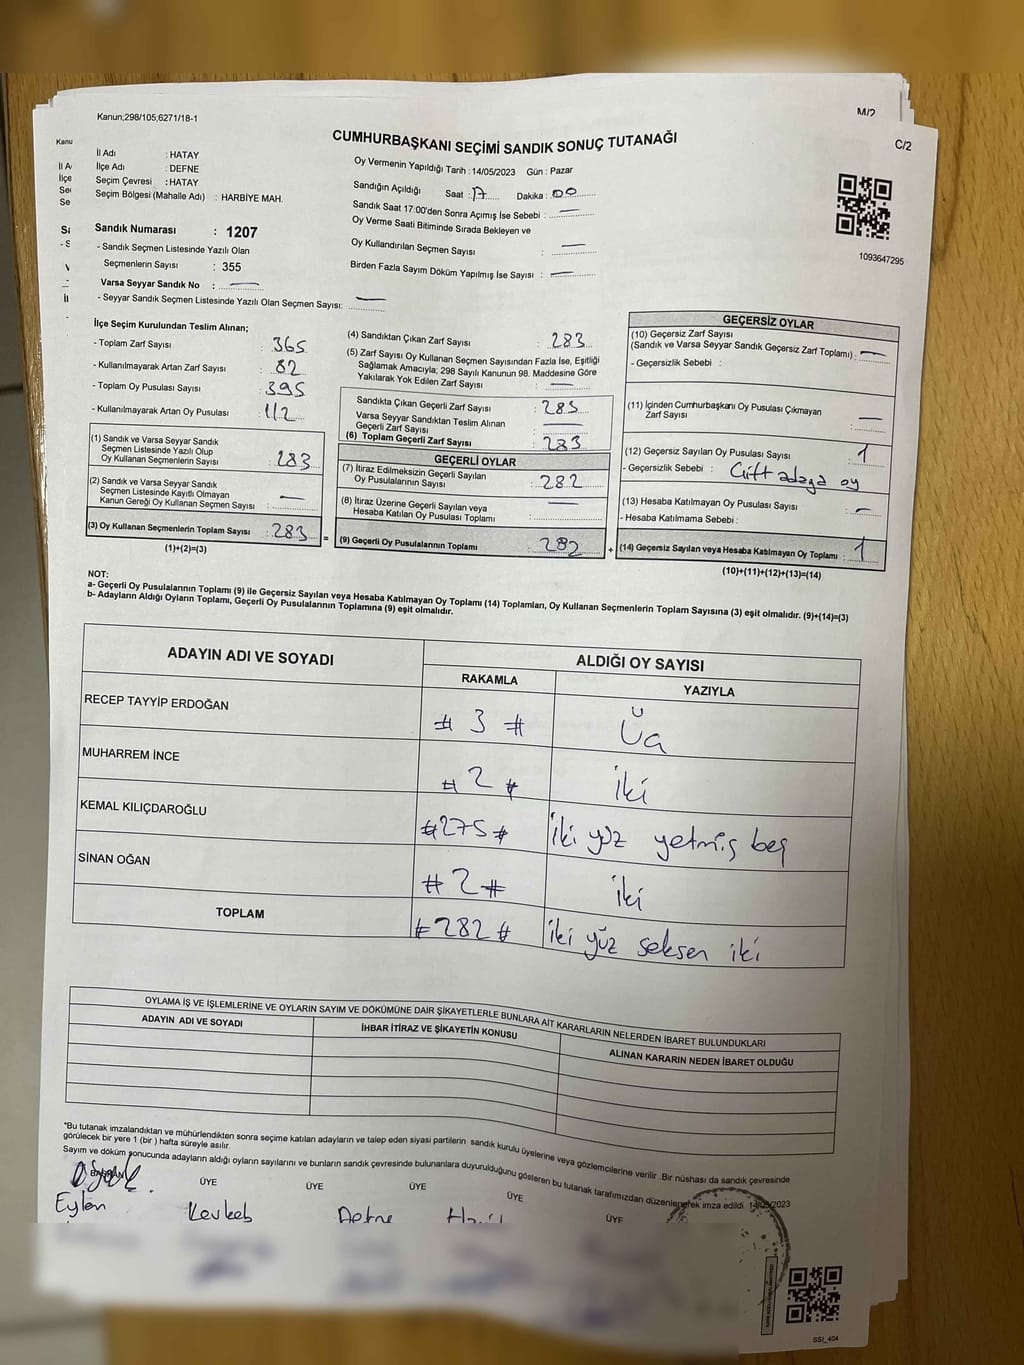 Kanun;298/105,6271/18-1
M/2
C/2
CUMHURBAŞKANI SEÇİMİ SANDIK SONUÇ TUTANAĞI
İl Adı : HATAY
İlçe Adı : DEFNE
Seçim Çevresi : HATAY
Seçim Bölgesi (Mahalle Adı) : HARBİYE MAH.
Sandık Numarası : 1207
- Sandık Seçmen Listesinde Yazılı Olan
Seçmenlerin Sayısı : 355
Varsa Seyyar Sandık No : —
- Seyyar Sandık Seçmen Listesinde Yazılı Olan Seçmen Sayısı: —
Oy Vermenin Yapıldığı Tarih : 14/05/2023 Gün : Pazar
Sandığın Açıldığı Saat : 17 Dakika : 00
Sandık Saat 17:00'den Sonra Açımış İse Sebebi : —
Oy Verme Saati Bitiminde Sırada Bekleyen ve
Oy Kullandırılan Seçmen Sayısı —
Birden Fazla Sayım Döküm Yapılmış İse Sayısı : —
1093647295
İlçe Seçim Kurulundan Teslim Alınan;
- Toplam Zarf Sayısı : 365
- Kullanılmayarak Artan Zarf Sayısı : 82
- Toplam Oy Pusulası Sayısı : 395
- Kullanılmayarak Artan Oy Pusulası : 112
(1) Sandık ve Varsa Seyyar Sandık
Seçmen Listesinde Yazılı Olup
Oy Kullanan Seçmenlerin Sayısı : 283
(2) Sandık ve Varsa Seyyar Sandık
Seçmen Listesinde Kayıtlı Olmayan
Kanun Gereği Oy Kullanan Seçmen Sayısı : —
(3) Oy Kullanan Seçmenlerin Toplam Sayısı : 283 =
(1)+(2)=(3)
(4) Sandıktan Çıkan Zarf Sayısı : 283
(5) Zarf Sayısı Oy Kullanan Seçmen Sayısından Fazla İse, Eşitliği
Sağlamak Amacıyla; 298 Sayılı Kanunun 98. Maddesine Göre
Yakılarak Yok Edilen Zarf Sayısı : —
Sandıkta Çıkan Geçerli Zarf Sayısı : 283
Varsa Seyyar Sandıktan Teslim Alınan
Geçerli Zarf Sayısı : —
(6) Toplam Geçerli Zarf Sayısı : 283
GEÇERLİ OYLAR
(7) İtiraz Edilmeksizin Geçerli Sayılan
Oy Pusulalarının Sayısı : 282
(8) İtiraz Üzerine Geçerli Sayılan veya
Hesaba Katılan Oy Pusulası Toplamı : —
(9) Geçerli Oy Pusulalarının Toplamı : 282 +
GEÇERSİZ OYLAR
(10) Geçersiz Zarf Sayısı
(Sandık ve Varsa Seyyar Sandık Geçersiz Zarf Toplamı) : —
- Geçersizlik Sebebi :
(11) İçinden Cumhurbaşkanı Oy Pusulası Çıkmayan
Zarf Sayısı : —
(12) Geçersiz Sayılan Oy Pusulası Sayısı : 1
- Geçersizlik Sebebi : Çift adaya oy
(13) Hesaba Katılmayan Oy Pusulası Sayısı : —
- Hesaba Katılmama Sebebi :
(14) Geçersiz Sayılan veya Hesaba Katılmayan Oy Toplamı : 1
(10)+(11)+(12)+(13)=(14)
NOT:
a- Geçerli Oy Pusulalarının Toplamı (9) ile Geçersiz Sayılan veya Hesaba Katılmayan Oy Toplamı (14) Toplamları, Oy Kullanan Seçmenlerin Toplam Sayısına (3) eşit olmalıdır. (9)+(14)=(3)
b- Adayların Aldığı Oyların Toplamı, Geçerli Oy Pusulalarının Toplamına (9) eşit olmalıdır.
ADAYIN ADI VE SOYADI
ALDIĞI OY SAYISI
RAKAMLA YAZIYLA
RECEP TAYYİP ERDOĞAN # 3 # Üç
MUHARREM İNCE # 2 # İki
KEMAL KILIÇDAROĞLU #275# İki yüz yetmiş beş
SİNAN OĞAN # 2 # İki
TOPLAM #282# İki yüz seksen iki
OYLAMA İŞ VE İŞLEMLERİNE VE OYLARIN SAYIM VE DÖKÜMÜNE DAİR ŞİKAYETLERLE BUNLARA AİT KARARLARIN NELERDEN İBARET BULUNDUKLARI
ADAYIN ADI VE SOYADI İHBAR İTİRAZ VE ŞİKAYETİN KONUSU ALINAN KARARIN NEDEN İBARET OLDUĞU
*Bu tutanak imzalandıktan ve mühürlendikten sonra seçime katılan adayların ve talep eden siyasi partilerin sandık kurulu üyelerine veya gözlemcilerine verilir. Bir nüshası da sandık çevresinde
görülecek bir yere 1 (bir) hafta süreyle asılır.
Sayım ve döküm sonucunda adayların aldığı oyların sayılarını ve bunların sandık çevresinde bulunanlara duyurulduğunu gösteren bu tutanak tarafımızdan düzenlenerek imza edildi. 14/05/2023
ÜYE ÜYE ÜYE ÜYE ÜYE
Eylen Kevkeb Defne Halil
SSI_404